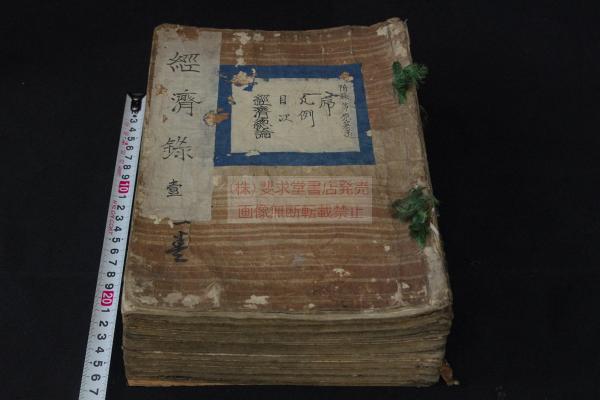 經濟錄
壹
一 壹
序
凡例
目次
經濟總論
(株)斐求堂書店発売
画像無断転載禁止
3
4
5
6
7
8
9
10
1
2
3
4
5
6
7
8
9
20
1
2
3
4
5
6
7